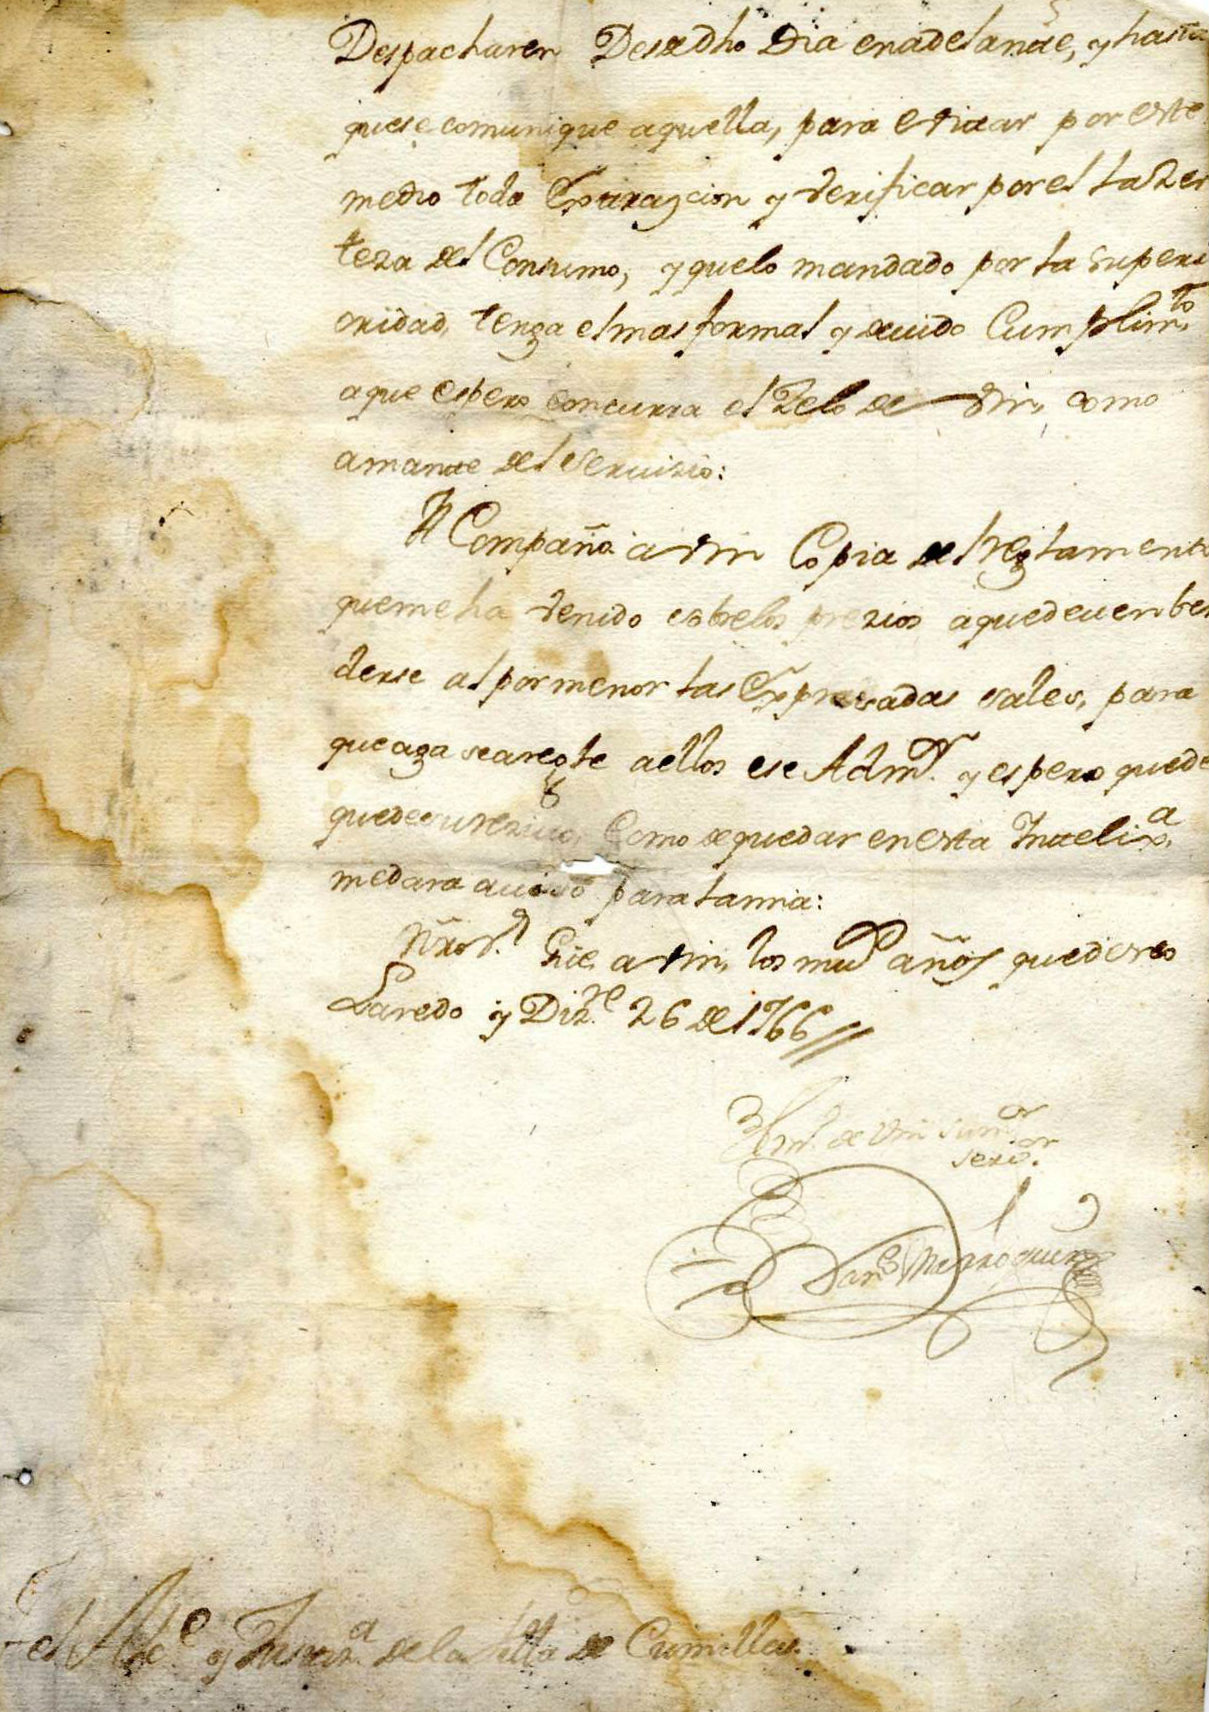 Despacharen Desde dho Dia en adelante, y hasta
que se comunique aquella, para evitar por este
medio toda Extrazcion y verificar por el la Zer
teza del Consumo, y que lo mandado por la superi
oridad, tenga el mas formal y deuido Cumplim.to
a que espero concurra el Zelo de Vm, como
amante del Seruizio:
A Compaño a Vm Copia del Reglamento
que me ha venido sobre los prezios a que deuen ben
derse al por menor las Expresadas sales, para
que aga se aregle a ellos ese Adm.or y espero que de
como de quedar en esta Intelix.a
me dara auiso para la mia:
Nro S.r Gue a Vm los m.s años que deseo
Laredo y Diz.re 26 de 1766//
de Vm su m.or
seru.or
el Alc.e y Justiz.a de la Villa de Comillas.